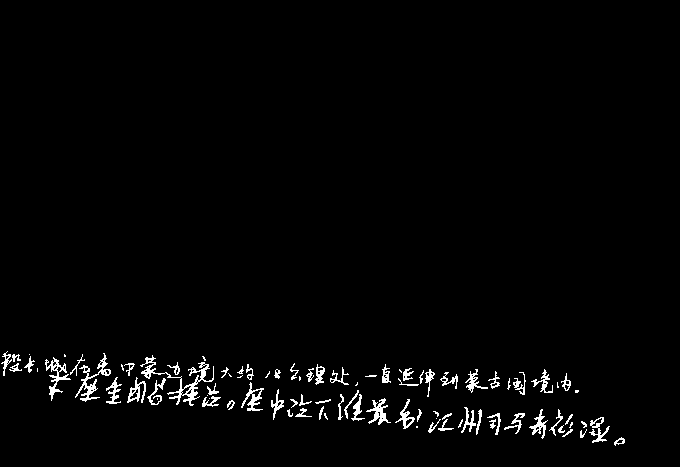 段长城在离中蒙边境大约18公里处,一直延伸到蒙古国境内.
座重闻皆掩泣。座中泣下谁最多?江州司马青衫湿。